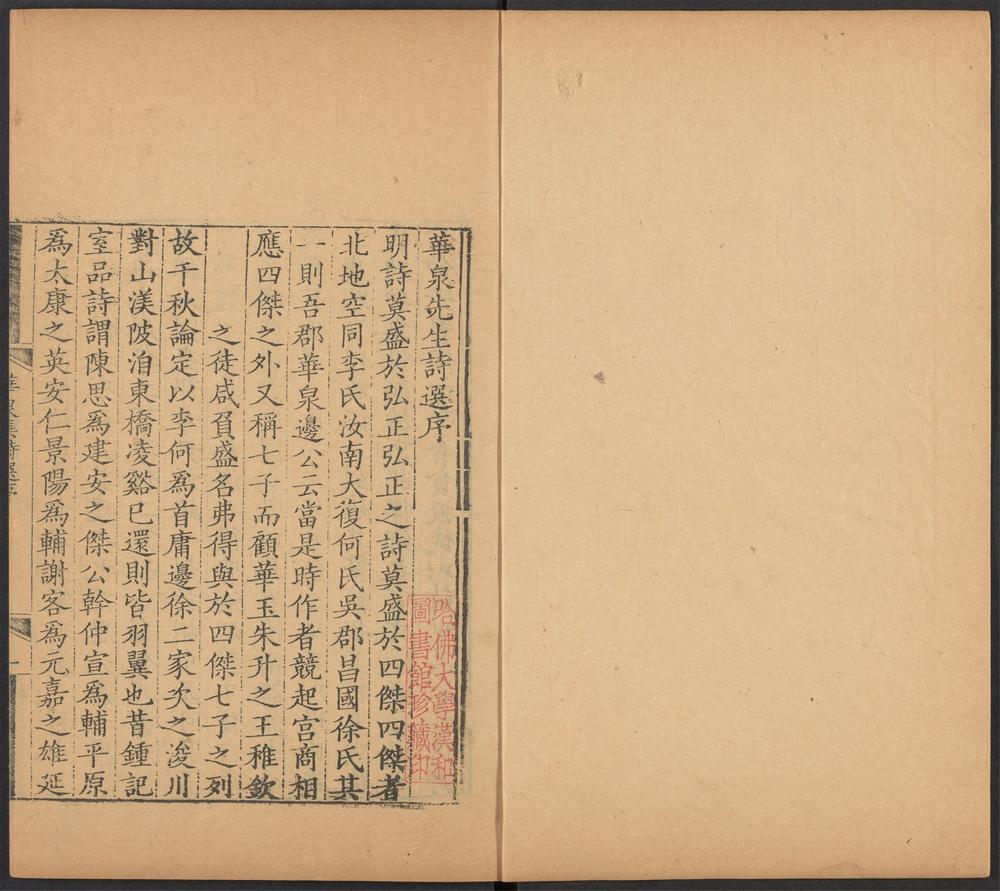 華泉先生詩選序
明詩莫盛於弘正弘正之詩莫盛於四傑四傑者
北地空同李氏汝南大復何氏吳郡昌國徐氏其
一則吾郡華泉邊公云當是時作者競起宮商相
應四傑之外又稱七子而顧華玉朱升之王稚欽
之徒咸負盛名弗得與於四傑七子之列
故千秋論定以李何為首庸邊徐二家次之浚川
對山渼陂洎東橋凌谿已還則皆羽翼也昔鍾記
室品詩謂陳思為建安之傑公幹仲宣為輔平原
為太康之英安仁景陽為輔謝客為元嘉之雄延
華泉集詩選序
一
哈佛大學漢和
圖書館珍藏印